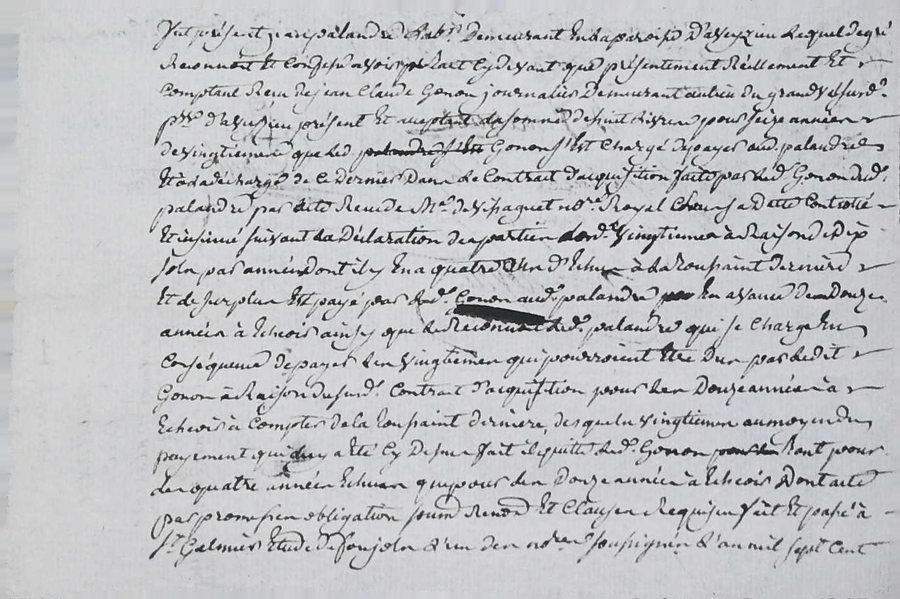 fut présent jean palandre habt. Demeurant En la paroisse D'aveyzieu Lequel de gré
Reconnoit Et Confesse avoir par Cy devant que présentement Réellement Et
Comptant Receu de jean Claude Gonon journalier Demeurant au lieu du grand
psse. d'aveyzieu présent Et acceptant la somme de huit Livres pour seize années
de vingtiemes que led. palandre Gonon s'Est Chargé de payer aud. palandre
Et à la décharge de Ce Dernier Dans Le Contrat d'acquisition faite par led. Gonon dud.
palandre par acte Receu de Me. not.re Royal Controllé
Et insinué suivant La Déclaration des parties lesd. vingtiemes à Raison de Dix
sols par année Dont il y En a quatre D'Echue à la toussaint derniere
Et le surplus Est payé par led. Gonon aud. palandre En avance Des Douze
années à Echeoir ainsy que Le Reconnoit led. palandre qui se Charge En
Conséquence De payer Les vingtiemes qui pourroient Etre Dus par ledit
Gonon à Raison du surd. Contrat d'acquisition pour Les Douze années à
Echeoir à Compter de la toussaint derniere, desquels vingtiemes au moyen du
payement qui a été Cy Dessus fait il quitte led. Gonon tant pour
Les quatre années Echues que pour Les Douze années à Echeoir Dont acte
par promesses obligation soum. Renon. Et Clauses Requises fait Et passé à
St. Galmier Etude De l'un des not.res soussignés L'an mil sept Cent